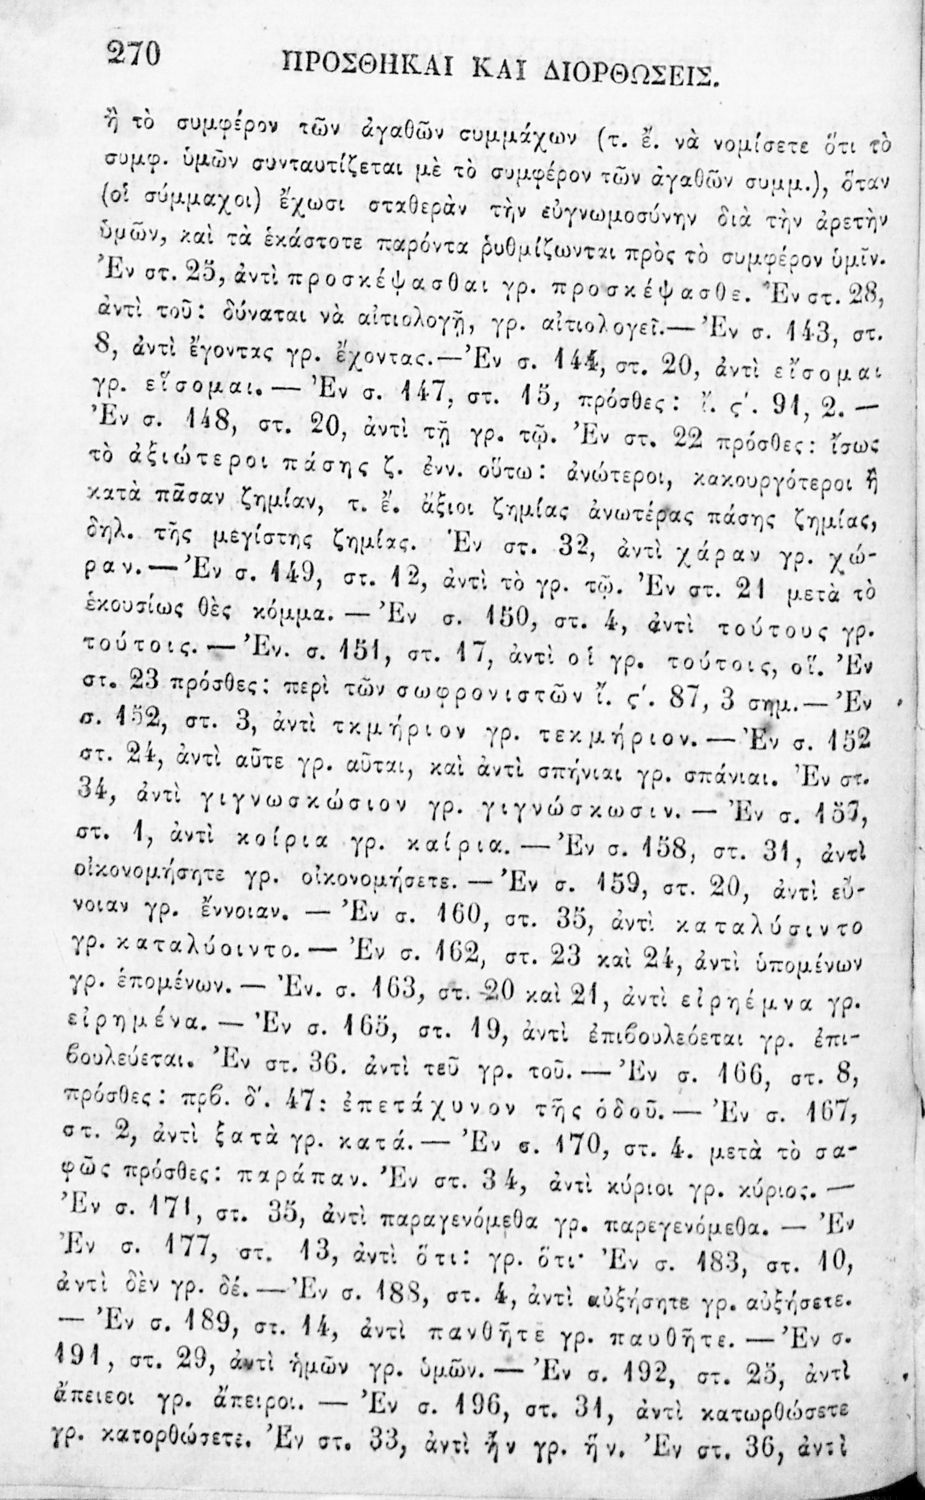 270 ΠΡΟΣΘΗΚΑΙ ΚΑΙ ΔΙΟΡΘΩΣΕΙΣ.
ἢ τὸ συμφέρον τῶν ἀγαθῶν συμμάχων (τ. ἔ. νὰ νομίσετε ὅτι τὸ
συμφ. ὑμῶν συνταυτίζεται μὲ τὸ συμφέρον τῶν ἀγαθῶν συμμ.), ὅταν
(οἱ σύμμαχοι) ἔχωσι σταθερὰν τὴν εὐγνωμοσύνην διὰ τὴν ἀρετὴν
ὑμῶν, καὶ τὰ ἑκάστοτε παρόντα ῥυθμίζωνται πρὸς τὸ συμφέρον ὑμῖν.
Ἐν στ. 25, ἀντὶ προσκέψασθαι γρ. προσκέψασθε. Ἐν στ. 28,
ἀντὶ τοῦ: δύναται νὰ αἰτιολογῇ, γρ. αἰτιολογεῖ.— Ἐν σ. 143, στ.
8, ἀντὶ ἔγοντας γρ. ἔχοντας.—Ἐν σ. 144, στ. 20, ἀντὶ εἴσομαι
γρ. εἴσομαι. — Ἐν σ. 147, στ. 15, πρόσθες: ἴ. ς΄. 91, 2. —
Ἐν σ. 148, στ. 20, ἀντὶ τῇ γρ. τῷ. Ἐν στ. 22 πρόσθες: ἴσως
τὸ ἀξιώτεροι πάσης ζ. ἐνν. οὕτω: ἀνώτεροι, κακουργότεροι ἢ
κατὰ πᾶσαν ζημίαν, τ. ἔ. ἄξιοι ζημίας ἀνωτέρας πάσης ζημίας,
δηλ. τῆς μεγίστης ζημίας. Ἐν στ. 32, ἀντὶ χάραν γρ. χώ-
ραν.— Ἐν σ. 149, στ. 12, ἀντὶ τὸ γρ. τῷ. Ἐν στ. 21 μετὰ τὸ
ἑκουσίως θὲς κόμμα. — Ἐν σ. 150, στ. 4, ἀντὶ τούτους γρ.
τούτοις. — Ἐν. σ. 151, στ. 17, ἀντὶ οἱ γρ. τούτοις, οἵ. Ἐν
στ. 23 πρόσθες: περὶ τῶν σωφρονιστῶν ἴ. ς΄. 87, 3 σημ.— Ἐν
σ. 152, στ. 3, ἀντὶ τκμήριον γρ. τεκμήριον. — Ἐν σ. 152
στ. 24, ἀντὶ αὗτε γρ. αὗται, καὶ ἀντὶ σπήνιαι γρ. σπάνιαι. Ἐν στ.
34, ἀντὶ γιγνωσκώσιον γρ. γιγνώσκωσιν. — Ἐν σ. 157,
στ. 1, ἀντὶ κοίρια γρ. καίρια. — Ἐν σ. 158, στ. 31, ἀντὶ
οἰκονομήσητε γρ. οἰκονομήσετε. — Ἐν σ. 159, στ. 20, ἀντὶ εὔ-
νοιαν γρ. ἔννοιαν. — Ἐν σ. 160, στ. 35, ἀντὶ καταλύσιντο
γρ. καταλύοιντο. — Ἐν σ. 162, στ. 23 καὶ 24, ἀντὶ ὑπομένων
γρ. ἑπομένων. — Ἐν. σ. 163, στ. 20 καὶ 21, ἀντὶ εἰρηέμνα γρ.
εἰρημένα. — Ἐν σ. 165, στ. 19, ἀντὶ ἐπιβουλεόεται γρ. ἐπι-
βουλεύεται. Ἐν στ. 36. ἀντὶ τεῦ γρ. τοῦ. — Ἐν σ. 166, στ. 8,
πρόσθες: πρβ. δ΄. 47: ἐπετάχυνον τῆς ὁδοῦ. — Ἐν σ. 167,
στ. 2, ἀντὶ ξατὰ γρ. κατά. — Ἐν σ. 170, στ. 4. μετὰ τὸ σα-
φῶς πρόσθες: παράπαν. Ἐν στ. 34, ἀντὶ κύριοι γρ. κύριος. —
Ἐν σ. 171, στ. 35, ἀντὶ παραγενόμεθα γρ. παρεγενόμεθα. — Ἐν
Ἐν σ. 177, στ. 13, ἀντὶ ὅτι: γρ. ὅτι· Ἐν σ. 183, στ. 10,
ἀντὶ δὲν γρ. δέ. — Ἐν σ. 188, στ. 4, ἀντὶ αὐξήσητε γρ. αὐξήσετε.
— Ἐν σ. 189, στ. 14, ἀντὶ πανθῆτε γρ. παυθῆτε. — Ἐν σ.
191, στ. 29, ἀντὶ ἡμῶν γρ. ὑμῶν. — Ἐν σ. 192, στ. 25, ἀντὶ
ἄπειεοι γρ. ἄπειροι. — Ἐν σ. 196, στ. 31, ἀντὶ κατωρθώσετε
γρ. κατορθώσετε. Ἐν στ. 33, ἀντὶ ἦν γρ. ἥν. Ἐν στ. 36, ἀντὶ